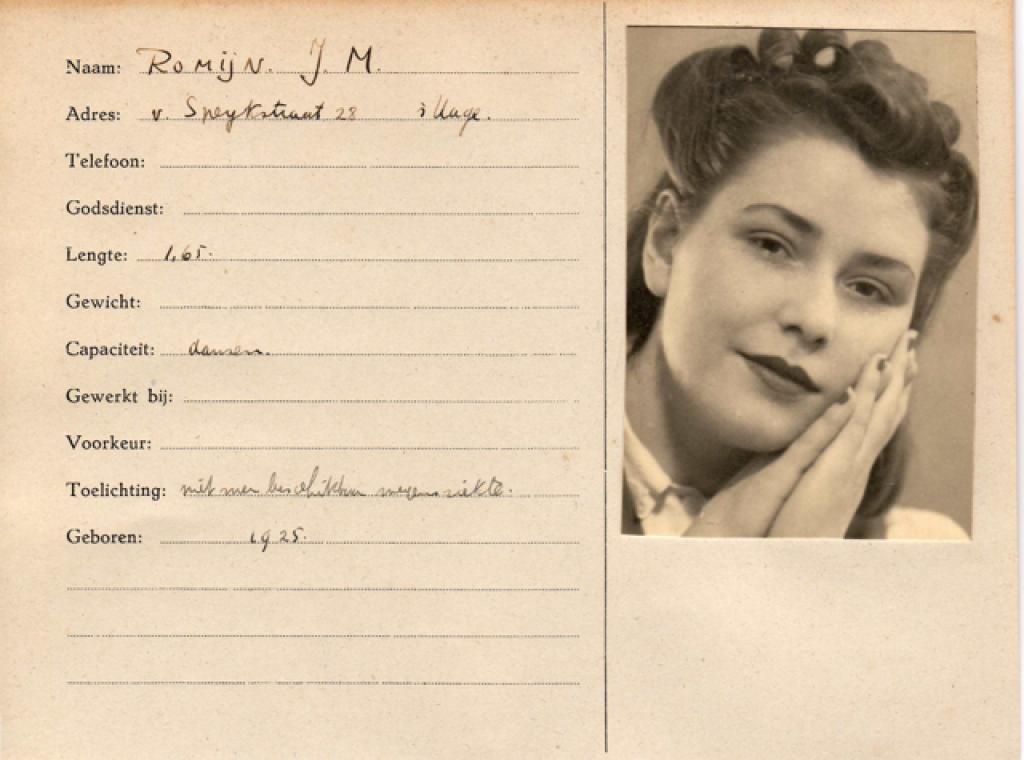 Naam: Romijn. J. M.
Adres: v. Speykstraat 28 's Hage.
Telefoon:
Godsdienst:
Lengte: 1,65.
Gewicht:
Capaciteit: dansen.
Gewerkt bij:
Voorkeur:
Toelichting: niet meer beschikbaar wegens ziekte.
Geboren: 1925.